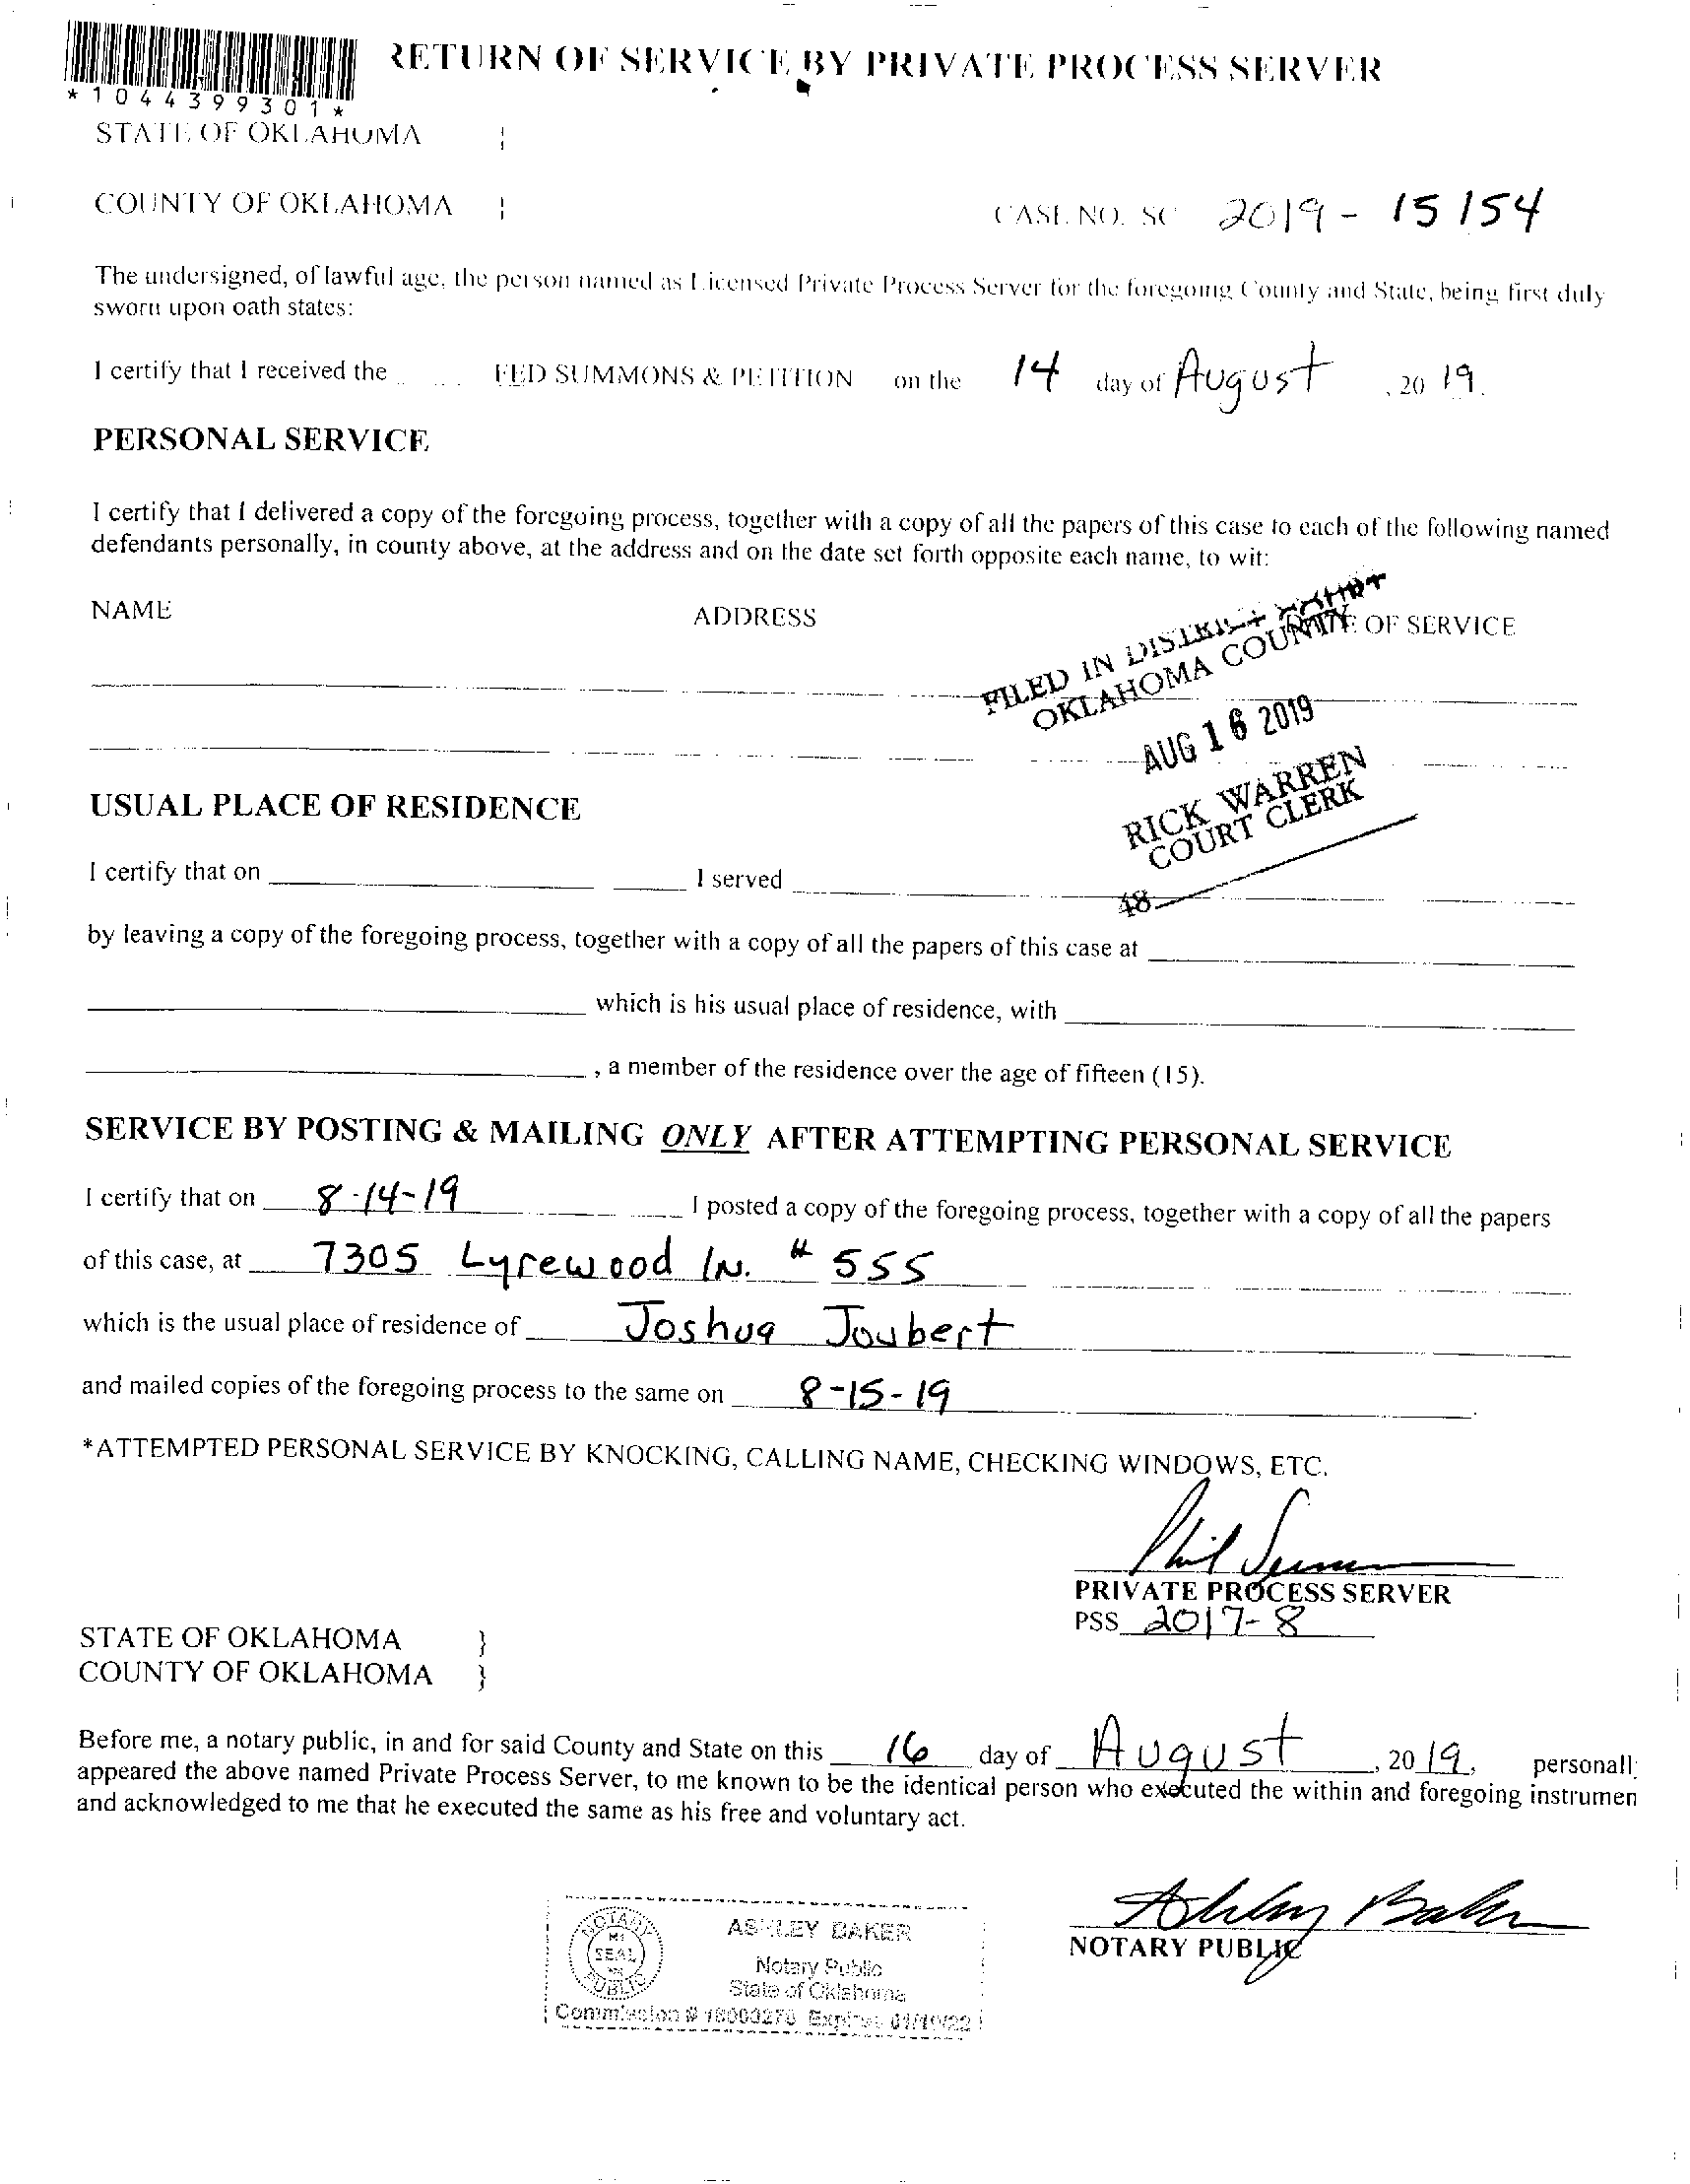 RETURN OF SERVICE BY PRIVATE PROCESS SERVER
*1044399301*
STATE OF OKLAHOMA }
COUNTY OF OKLAHOMA } CASE NO. SC 2019 - 15154
The undersigned, of lawful age, the person named as Licensed Private Process Server for the foregoing County and State, being first duly
sworn upon oath states:
I certify that I received the FED SUMMONS & PETITION on the 14 day of August , 20 19.
PERSONAL SERVICE
I certify that I delivered a copy of the foregoing process, together with a copy of all the papers of this case to each of the following named
defendants personally, in county above, at the address and on the date set forth opposite each name, to wit:
NAME ADDRESS DATE OF SERVICE
FILED IN DISTRICT COURT
OKLAHOMA COUNTY
AUG 16 2019
RICK WARREN
COURT CLERK
48
USUAL PLACE OF RESIDENCE
I certify that on I served
by leaving a copy of the foregoing process, together with a copy of all the papers of this case at
which is his usual place of residence, with
, a member of the residence over the age of fifteen (15).
SERVICE BY POSTING & MAILING ONLY AFTER ATTEMPTING PERSONAL SERVICE
I certify that on 8-14-19 I posted a copy of the foregoing process, together with a copy of all the papers
of this case, at 7305 Lyrewood ln. # 555
which is the usual place of residence of Joshua Joubert
and mailed copies of the foregoing process to the same on 8-15-19.
*ATTEMPTED PERSONAL SERVICE BY KNOCKING, CALLING NAME, CHECKING WINDOWS, ETC.
PRIVATE PROCESS SERVER
PSS 2017-8
STATE OF OKLAHOMA }
COUNTY OF OKLAHOMA }
Before me, a notary public, in and for said County and State on this 16 day of August , 20 19, personall
appeared the above named Private Process Server, to me known to be the identical person who executed the within and foregoing instrumen
and acknowledged to me that he executed the same as his free and voluntary act.
Ashley Baker
NOTARY PUBLIC
NOTARY PUBLIC SEAL
ASHLEY BAKER
Notary Public
State of Oklahoma
Commission # Expires